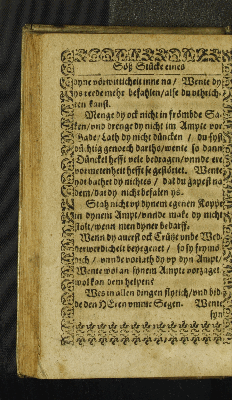 Söß Stücke eines
dyne vörwitticheit inne na / Wente dy
ys rerde mehr befahlen / alse du vthrich-
ten kanst.
Menge dy nicht in frömbde Sa-
ken / vnd drenge dy nicht im Ampte vor
Gade / Lath dy nicht düncken / du syst
düchtig genoch dartho / wente so dann
Dünckel hefft vele bedragen / vnnde ere
vormetenheit hefft se gestörtet. Wente
ydt bathet dy nichtes / dat du gapest na
dem / dat dy nicht befalen ys.
Stah nicht vp dynem egenen Koppe
in dynem Ampt / vnnde make dy nicht
stolt / wenn men dyner bedarff.
Wenn dy anerst ock Crütze vnde Wed-
derwerdicheit beyegenet / so sy frymö-
dich / vnnde vorlath dy vp dyn Ampt /
Wente wol an synem Ampte vortzaget
wol kan dem helpen?
Wes in allen dingen flytich / vnd bid-
de den HEren vmme Segen. Wente
syn